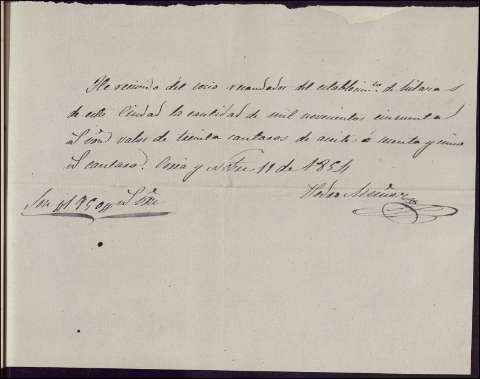 He recivido del socio recaudador del establecim.to de
de esta Ciudad la cantidad de mil novecientos cincuenta
r.s v.on valor de treinta cantaros de aceite á sesenta y cinco
r.s cantaro. Coria y 11 de 1854
Son 1950 r.s v.on Pedro Muñoz